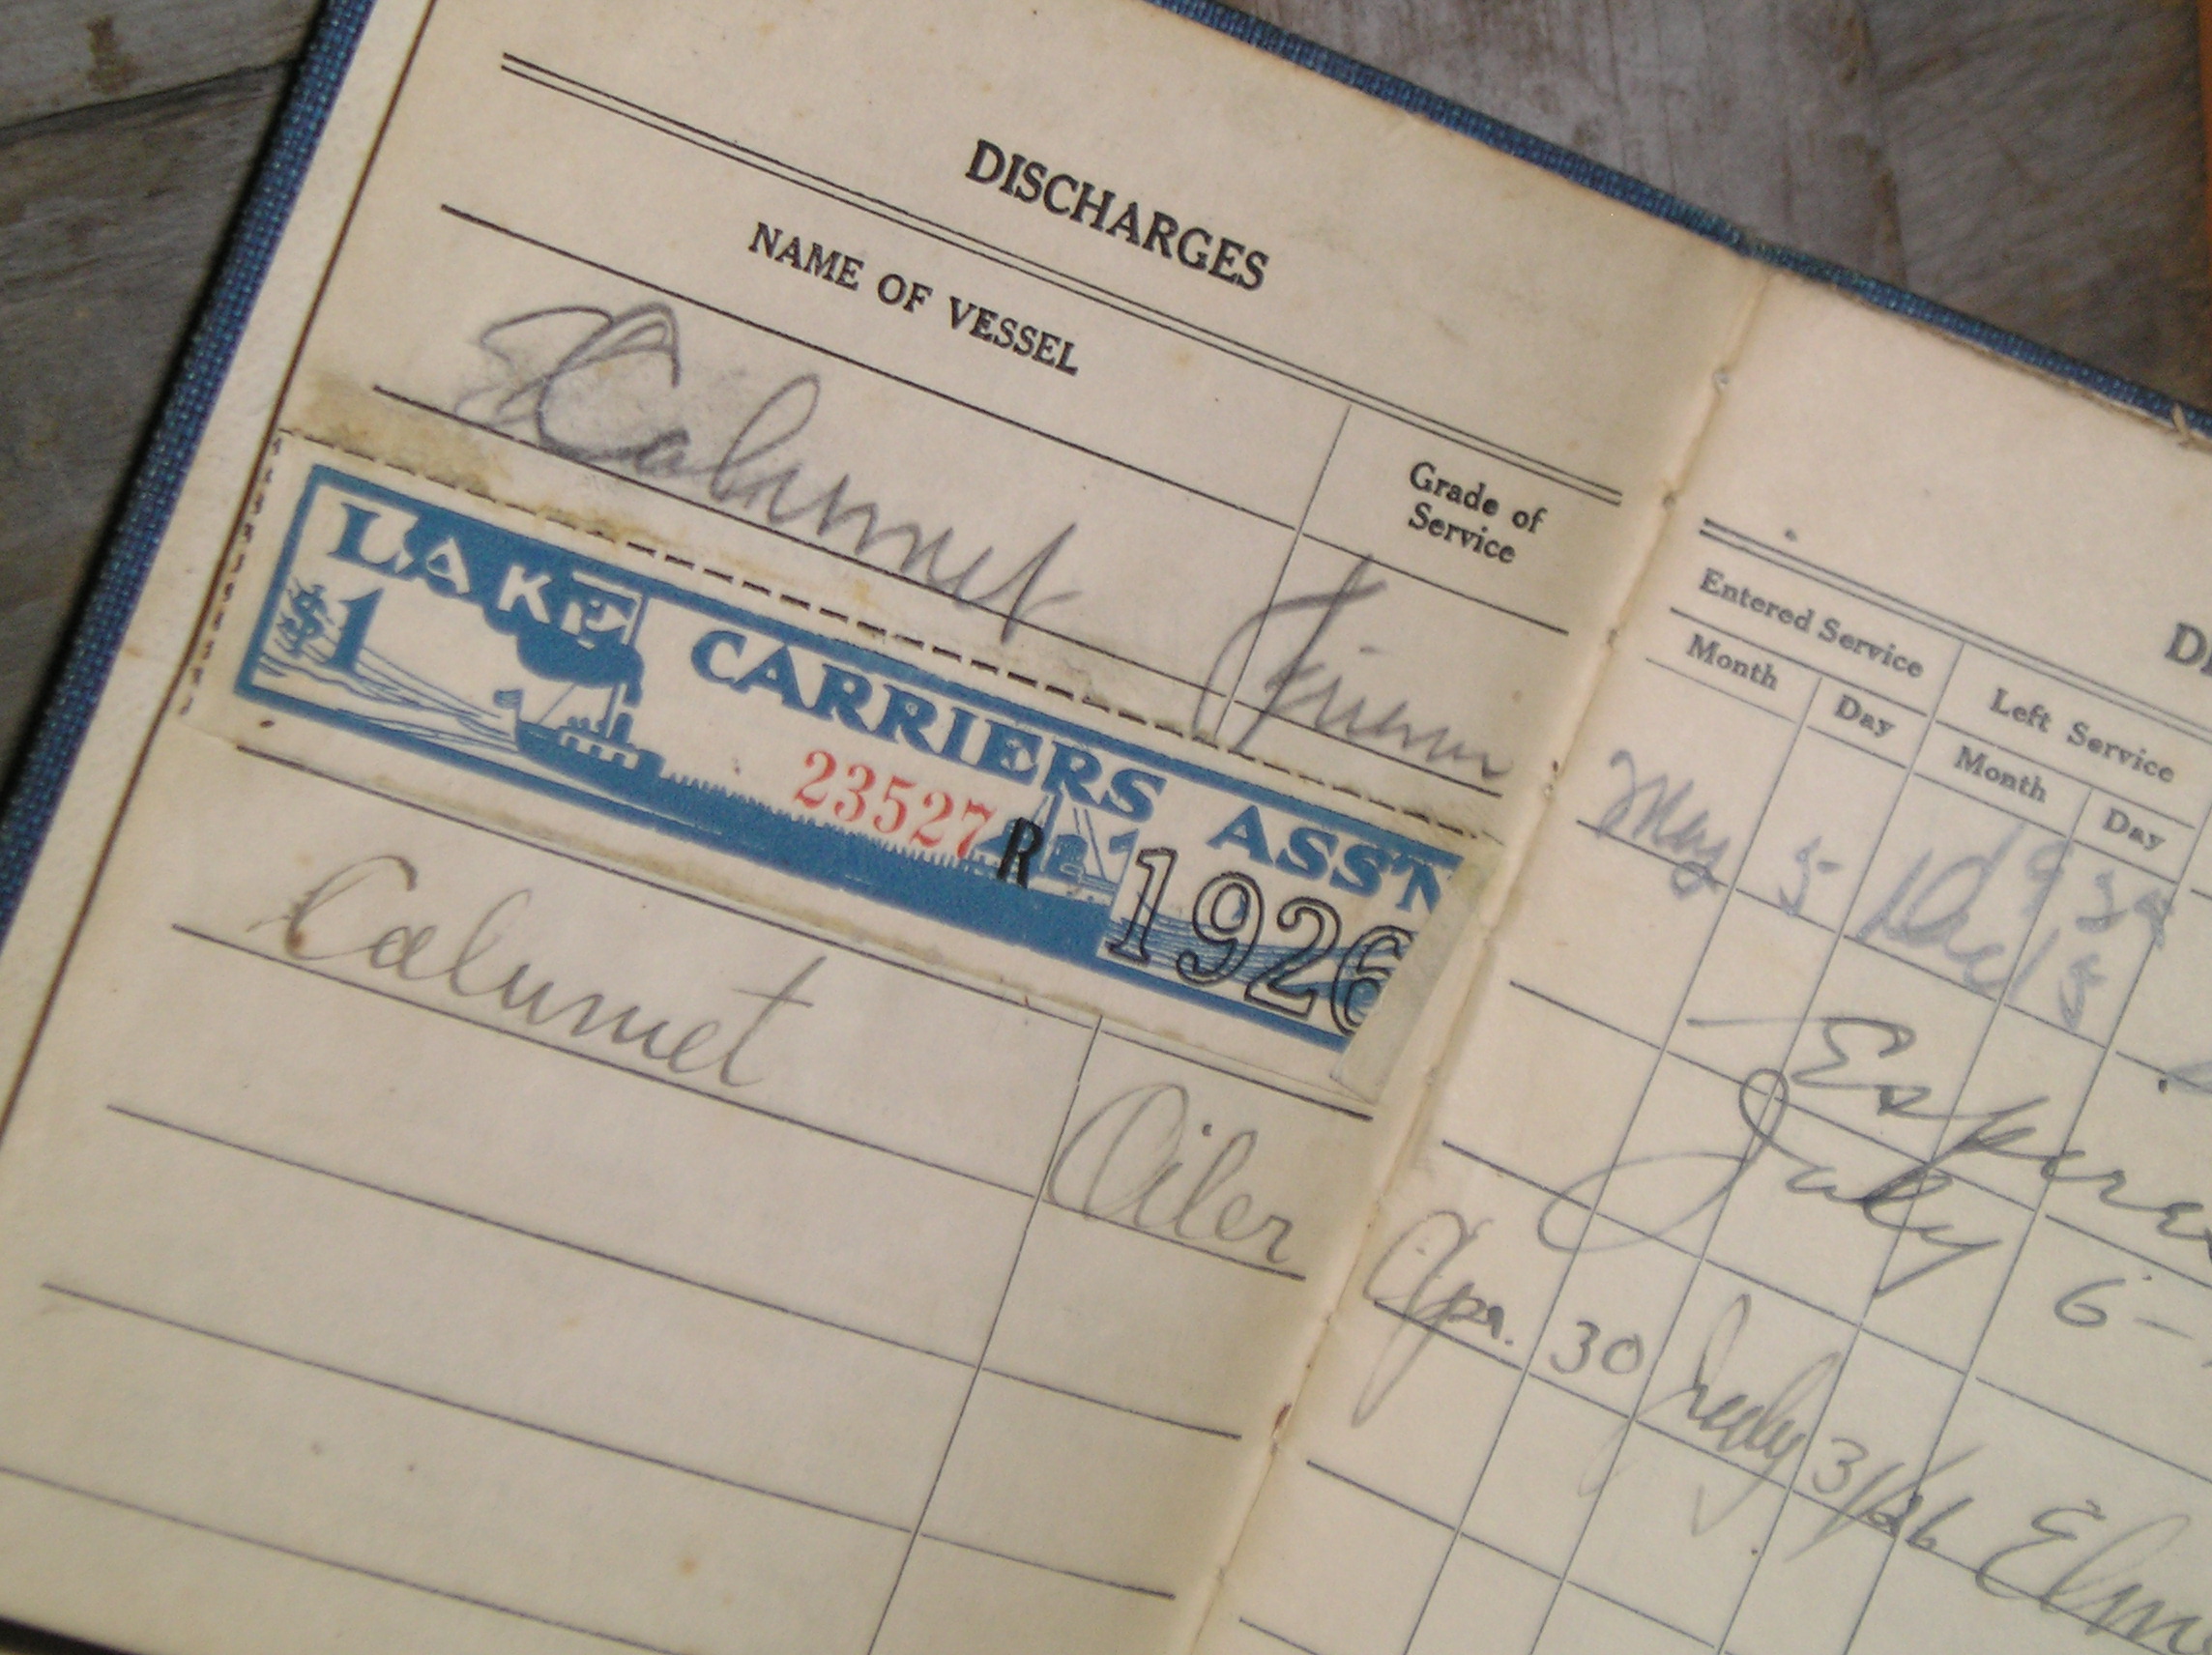 DISCHARGES
NAME OF VESSEL
Grade of
Service
Calumet
LAKE CARRIERS ASS'N
$1
23527 R
1926
Calumet Oiler
Entered Service
Left Service
Month Day Month Day
May 5 Dec 15
July 6 -
Apr. 30 July 3/26